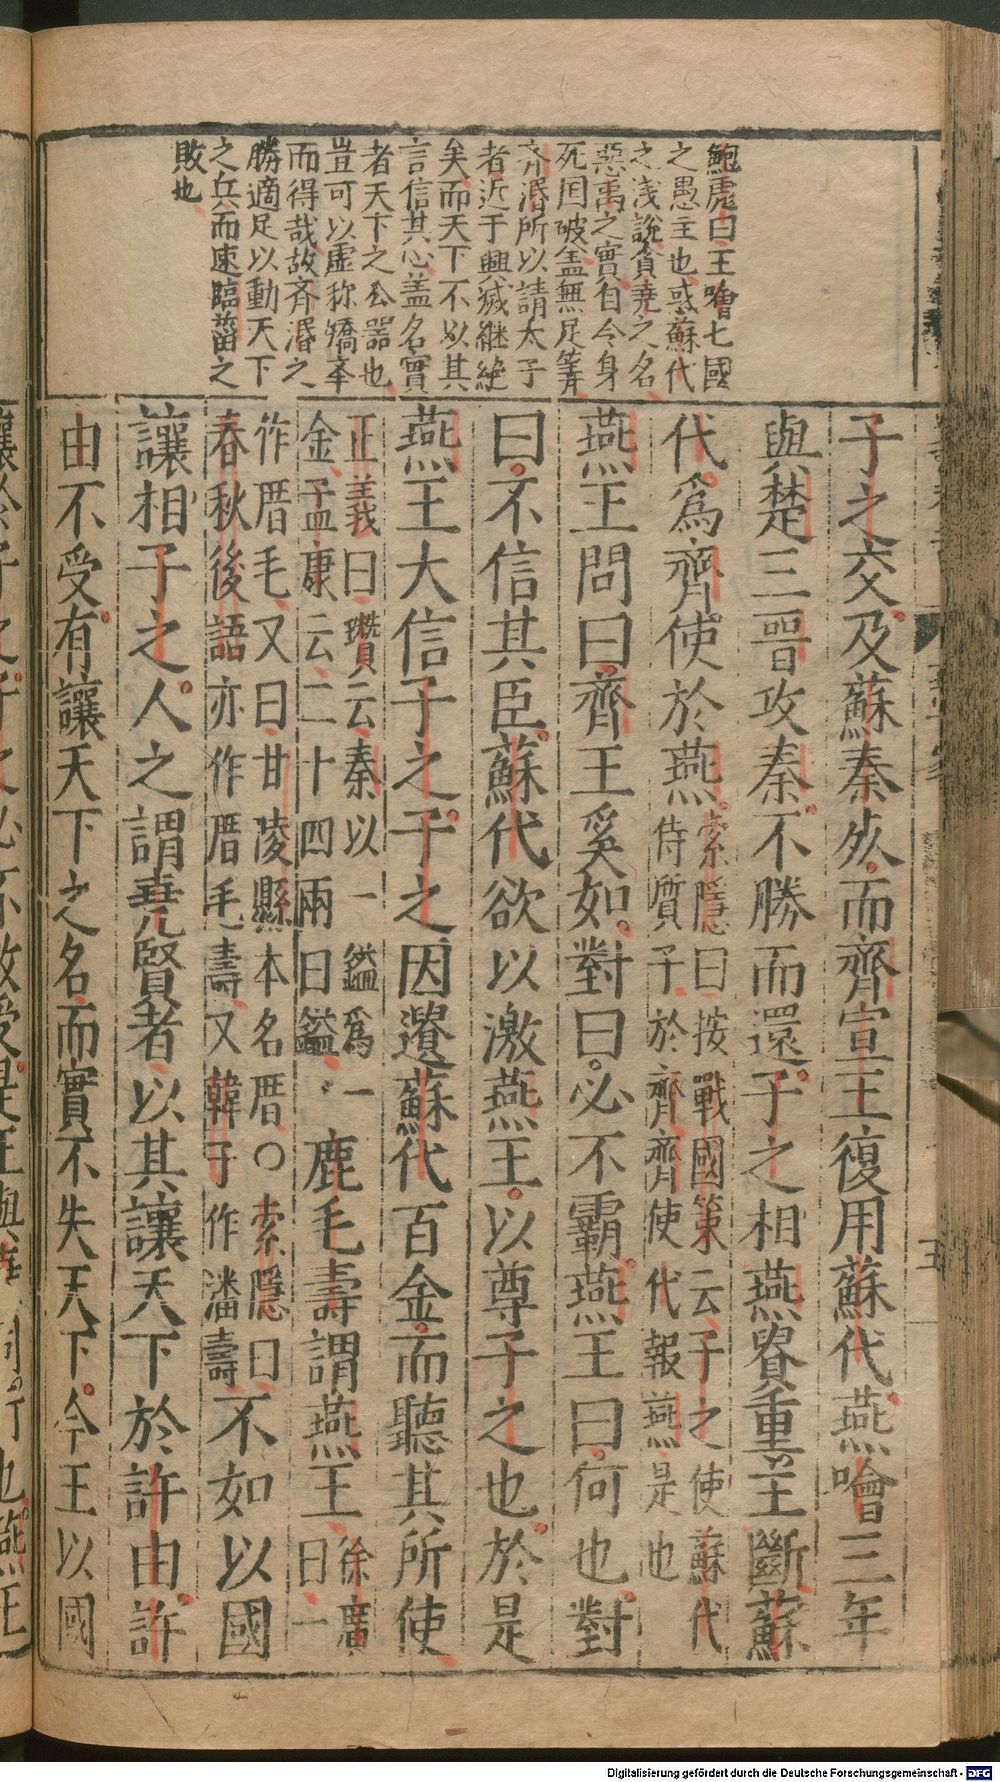 鮑彪曰王噲七國
之愚主也惑蘇代
之淺說貪堯之名
惡禹之實自令身
死國破盖無足筭
齊湣所以請太子
者近于興滅継絶
矣而天下不以其
言信其心盖名實
者天下之公器也
豈可以虛称矯夲
而得哉故齊湣之
勝適足以動天下
之兵而速臨菑之
敗也
子之交及蘇秦死而齊宣王復用蘇代燕噲三年
與楚三晉攻秦不勝而還子之相燕貴重主斷蘇
代爲齊使於燕
索隱曰按戰國策云子之使蘇代
侍質子於齊齊使代報燕是也
燕王問曰齊王奚如對曰必不霸燕王曰何也對
曰不信其臣蘇代欲以激燕王以尊子之也於是
燕王大信子之子之因遺蘇代百金而聽其所使
正義曰瓚云秦以一鎰爲一
金孟康云二十四兩曰鎰
鹿毛壽謂燕王
徐廣
曰一
作厝毛又曰甘陵縣本名厝○索隱曰
春秋後語亦作厝毛壽又韓子作潘壽
不如以國
讓相子之人之謂堯賢者以其讓天下於許由許
由不受有讓天下之名而實不失天下今王以國
五
Digitalisierung gefördert durch die Deutsche Forschungsgemeinschaft - DFG